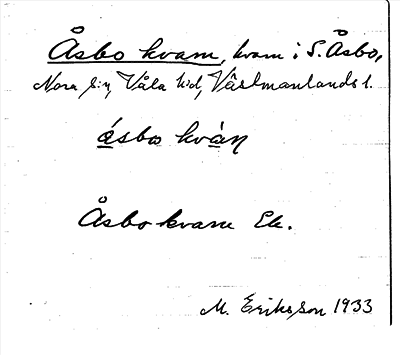 Åsbo kvarn, kvarn i S. Åsbo,
Nora s:n, Våla h:d, Västmanlands l.
åsbo kvàɳ
Åsbo kvarn Ek.
M. Eriksson 1933